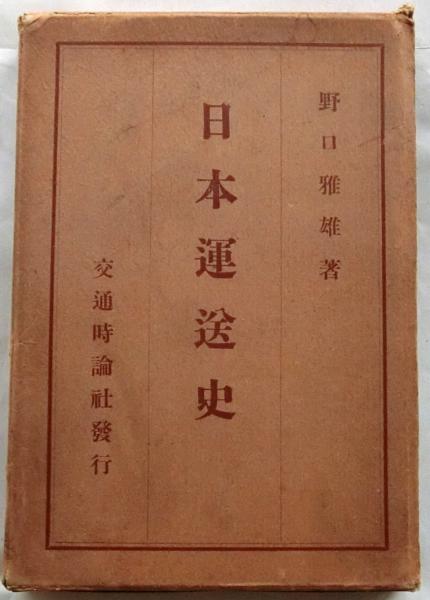 野口雅雄著
日本運送史
交通時論社發行